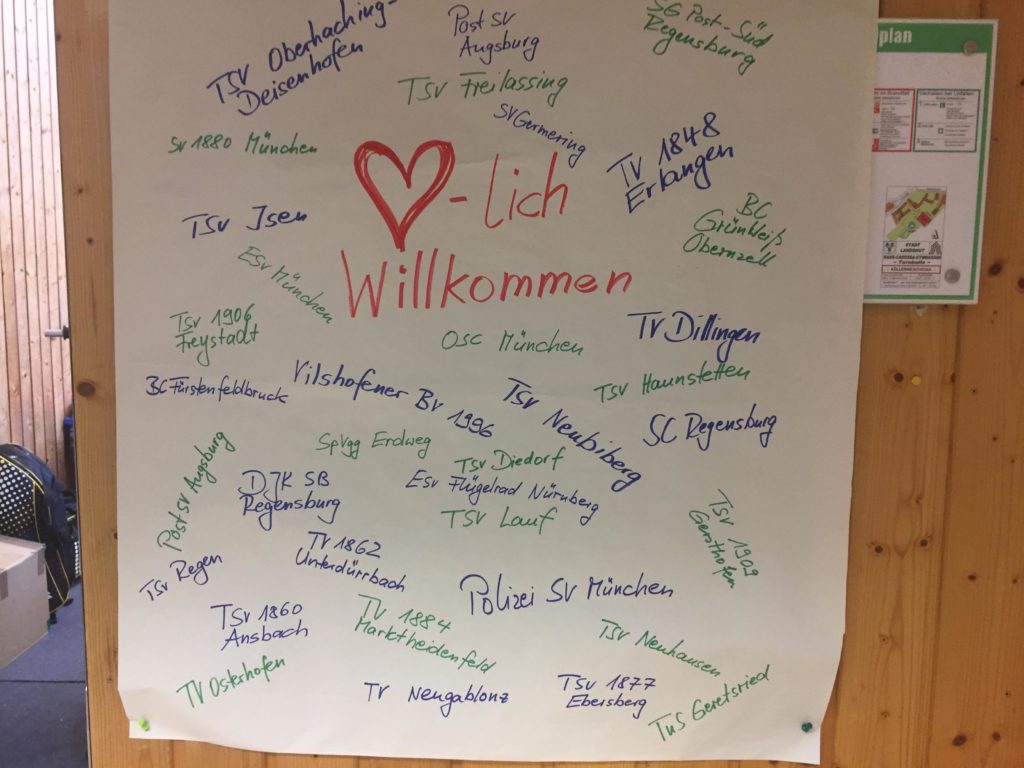 TSV Oberhaching-
Deisenhofen
Post SV
Augsburg
SG Post-Süd
Regensburg
TSV Freilassing
SV Germering
SV 1880 München
TV 1848
Erlangen
♡-lich
Willkommen
TSV Isen
BC
Grünweiß
Obernzell
ESV München
TSV 1906
Freystadt
OSC München
TV Dillingen
BC Fürstenfeldbruck
Vilshofener BV 1996
TSV Neubiberg
TSV Haunstetten
SC Regensburg
SpVgg Erdweg
TSV Diedorf
ESV Flügelrad Nürnberg
TSV Lauf
Post SV Augsburg
DJK SB
Regensburg
TSV 1909
Gersthofen
TSV Regen
TV 1862
Unterdürrbach
Polizei SV München
TSV 1860
Ansbach
TV 1884
Marktheidenfeld
TSV Neuhausen
TV Osterhofen
TV Neugablonz
TSV 1877
Ebersberg
TuS Geretsried
plan
STADT
LANDSHUT
HANS-CAROSSA-GYMNASIUM
- Turnhalle -